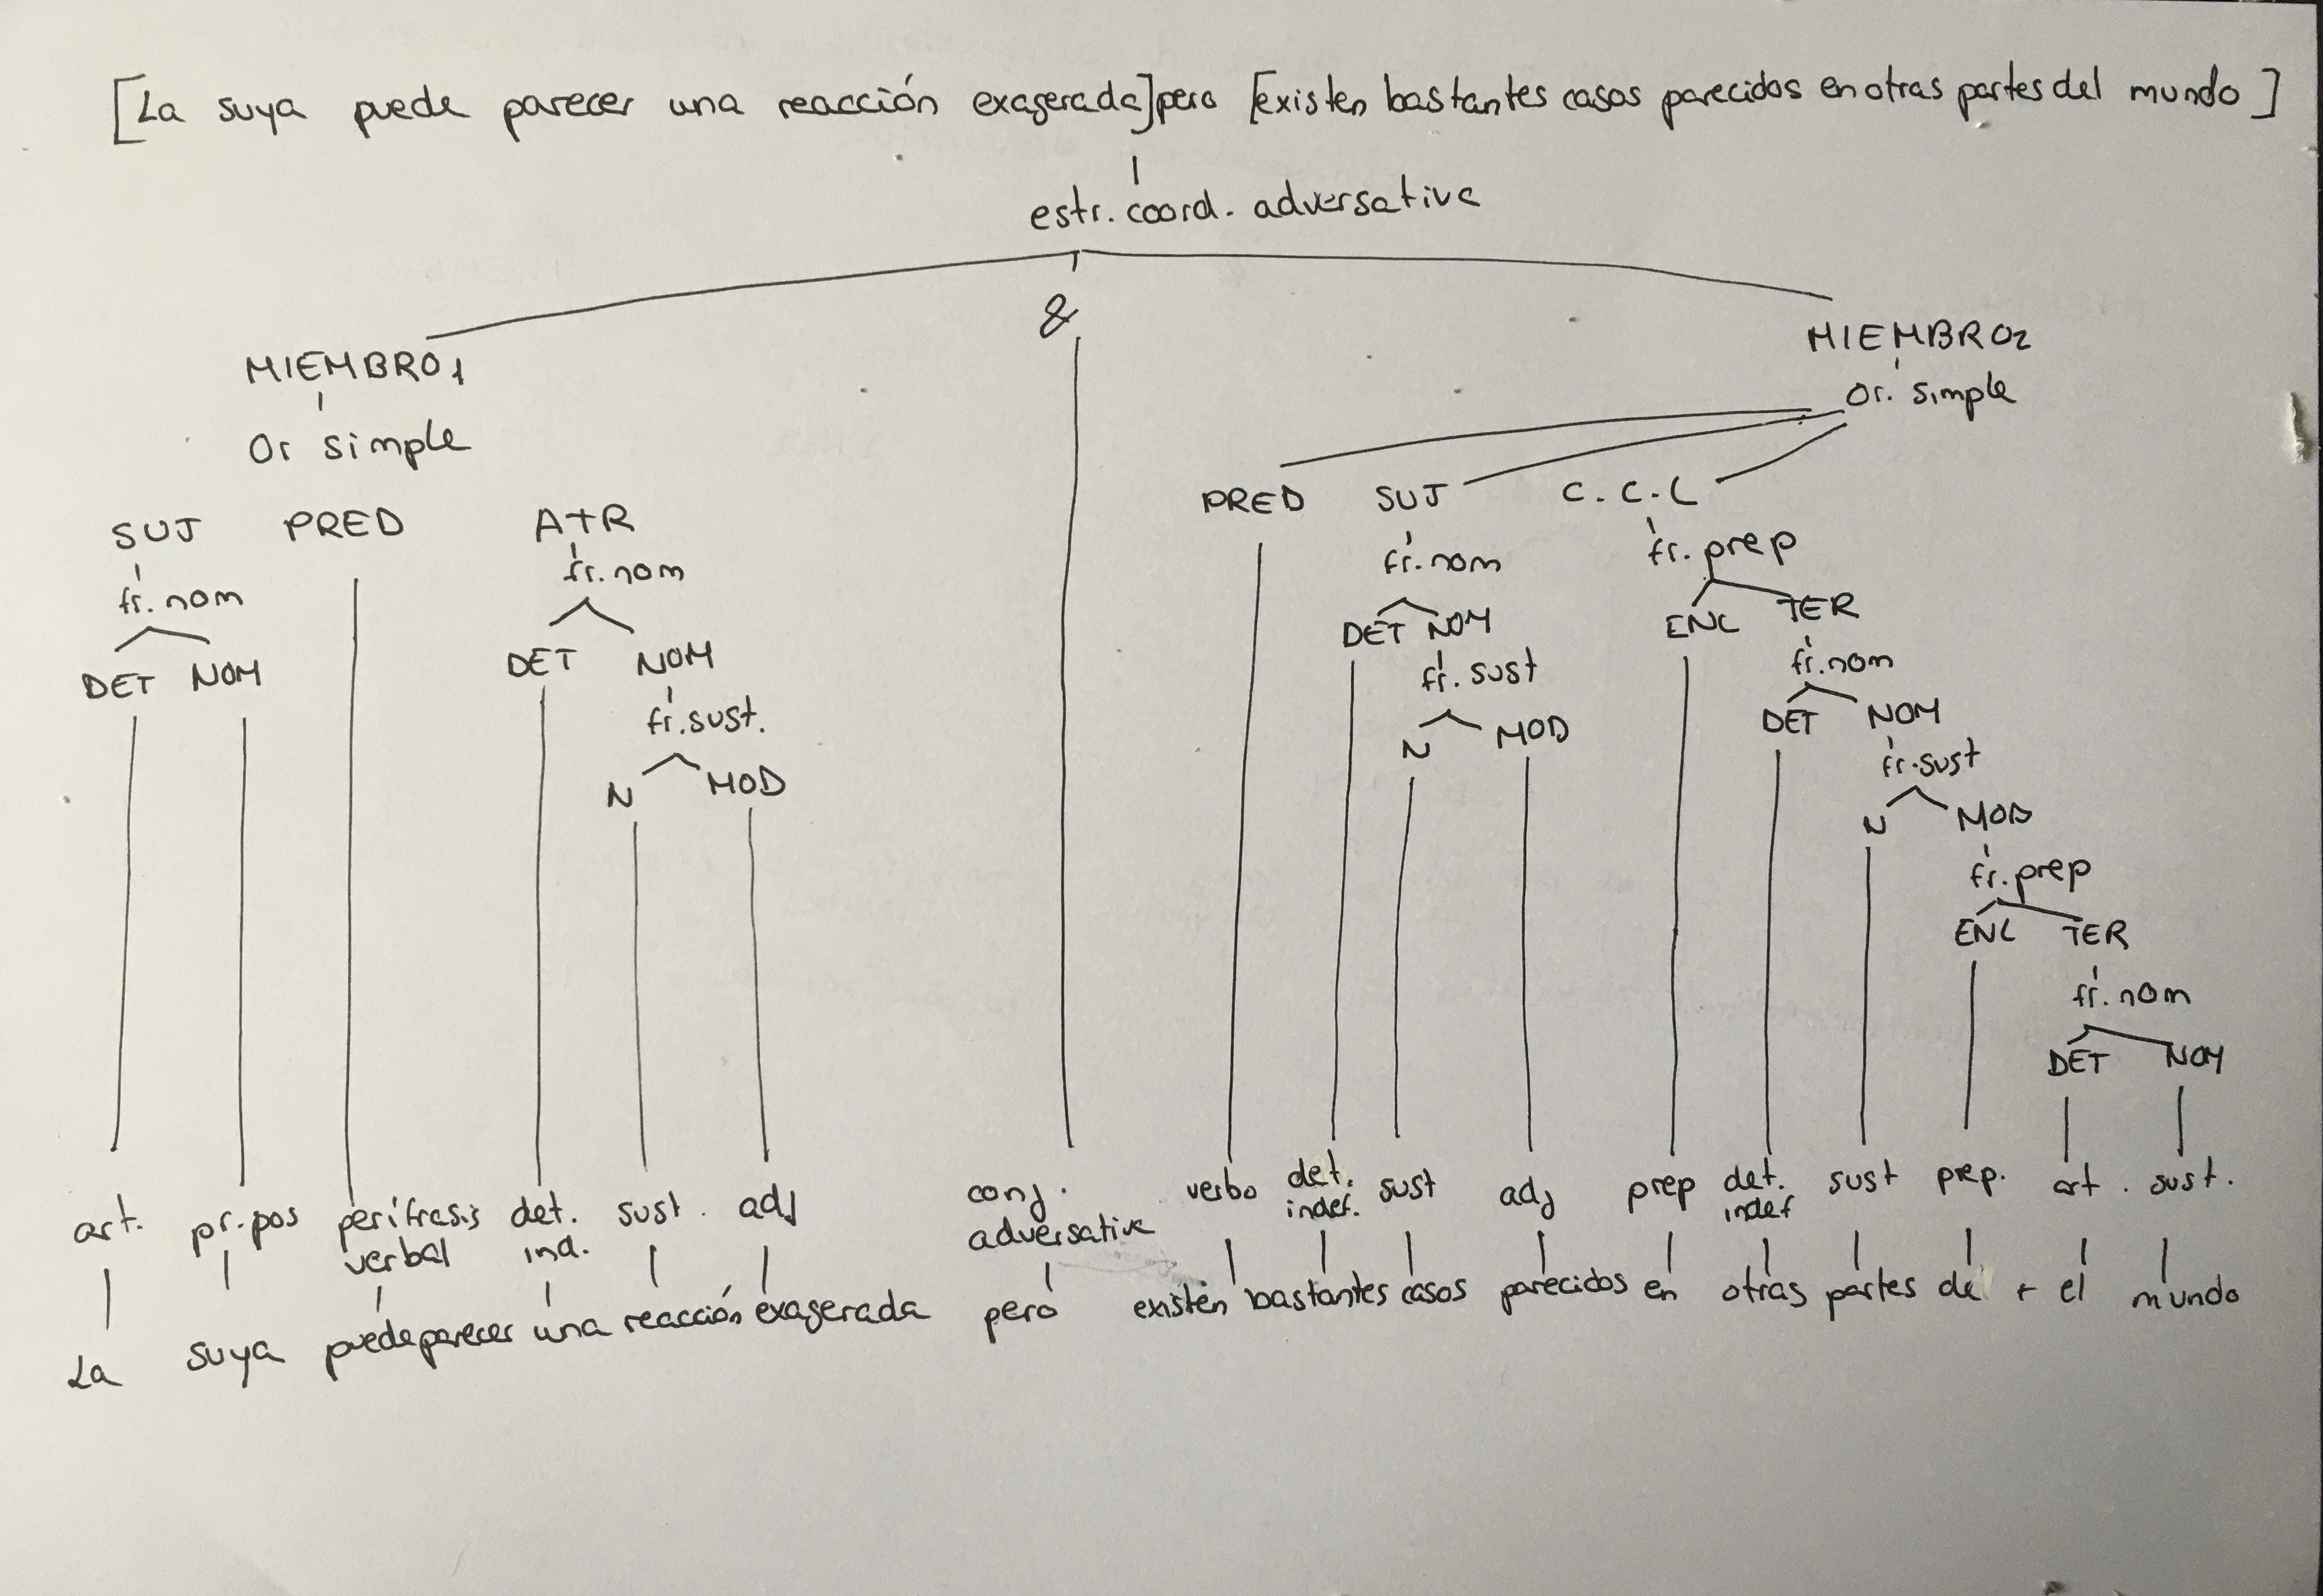 [La suya puede parecer una reacción exagerada] pero [existen bastantes casos parecidos en otras partes del mundo]
estr. coord. adversativa
&
MIEMBRO1 MIEMBRO2
Or simple Or. simple
SUJ PRED ATR PRED SUJ C.C.L
fr. nom fr. nom fr. nom fr. prep
DET NOM DET NOM DET NOM ENL TER
fr. sust. fr. sust fr. nom
N MOD N MOD DET NOM
fr. sust
N MOD
fr. prep
ENL TER
fr. nom
DET NOM
art. pr. pos perífrasis verbal det. ind. sust. adj conj. adversativa verbo det. indef. sust adj prep det. indef sust prep. art. sust.
La suya puede parecer una reacción exagerada pero existen bastantes casos parecidos en otras partes de + el mundo